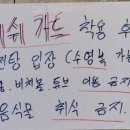 쉬 가드 착용 후
전탕 입장 (수영복 가능
, 비치볼 튜브 이용 금지
음식물 취식 금지